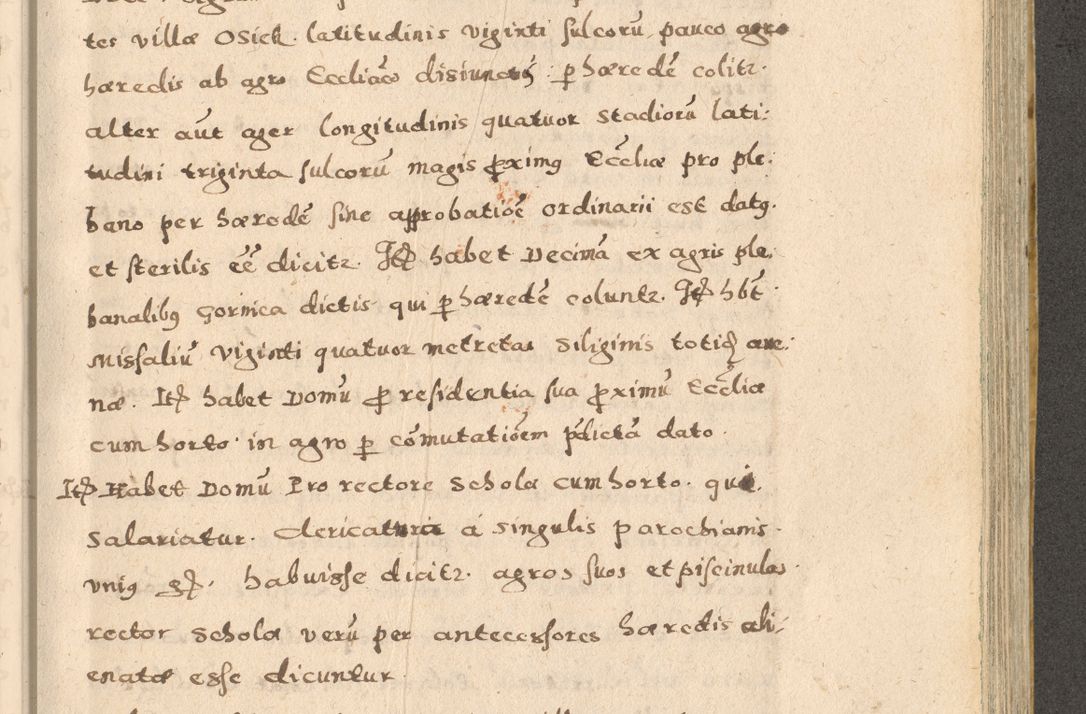 tes villæ Osiek latitudinis viginti sulcorū, pauco agro
hæredis ab agro Eccliāco disiunctus; p hæredē colitr.
alter aūt ager longitudinis quatuor stadiorū lati:
tudini triginta sulcorū magis proximꝯ Eccliæ pro ple:
bano per hæredē sine approbatiōe ordinarii est datꝯ.
et sterilis ēē dicitr. Itꝫ habet Decimā ex agris ple:
banalibꝯ Gornica dictis qui p hæredē coluntr. Itꝫ hbt̄
Missaliū viginti quatuor metretas siliginis totiꝗ ave:
næ. Itꝫ habet Domū pro residentia sua proximū Eccliæ
cum horto in agro p cōmutatiōem pdictā dato.
Itꝫ Habet Domū Pro rectore Scholæ cum horto. qui
Salariatur. Clericatura á singulis parochianis.
vniꝯ gꝫ. habuisse dicitr. agros suos et piscinulas
rector Scholæ verū per antecessores hæredis ali:
enatæ esse dicuntur